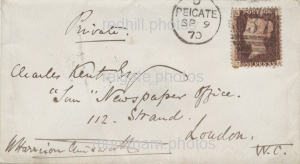 Private.
REIGATE
SP 9
70
Charles Kent Esq
"Sun" Newspaper Office.
112. Strand.
London.
W.C.
W Harrison Ainsworth